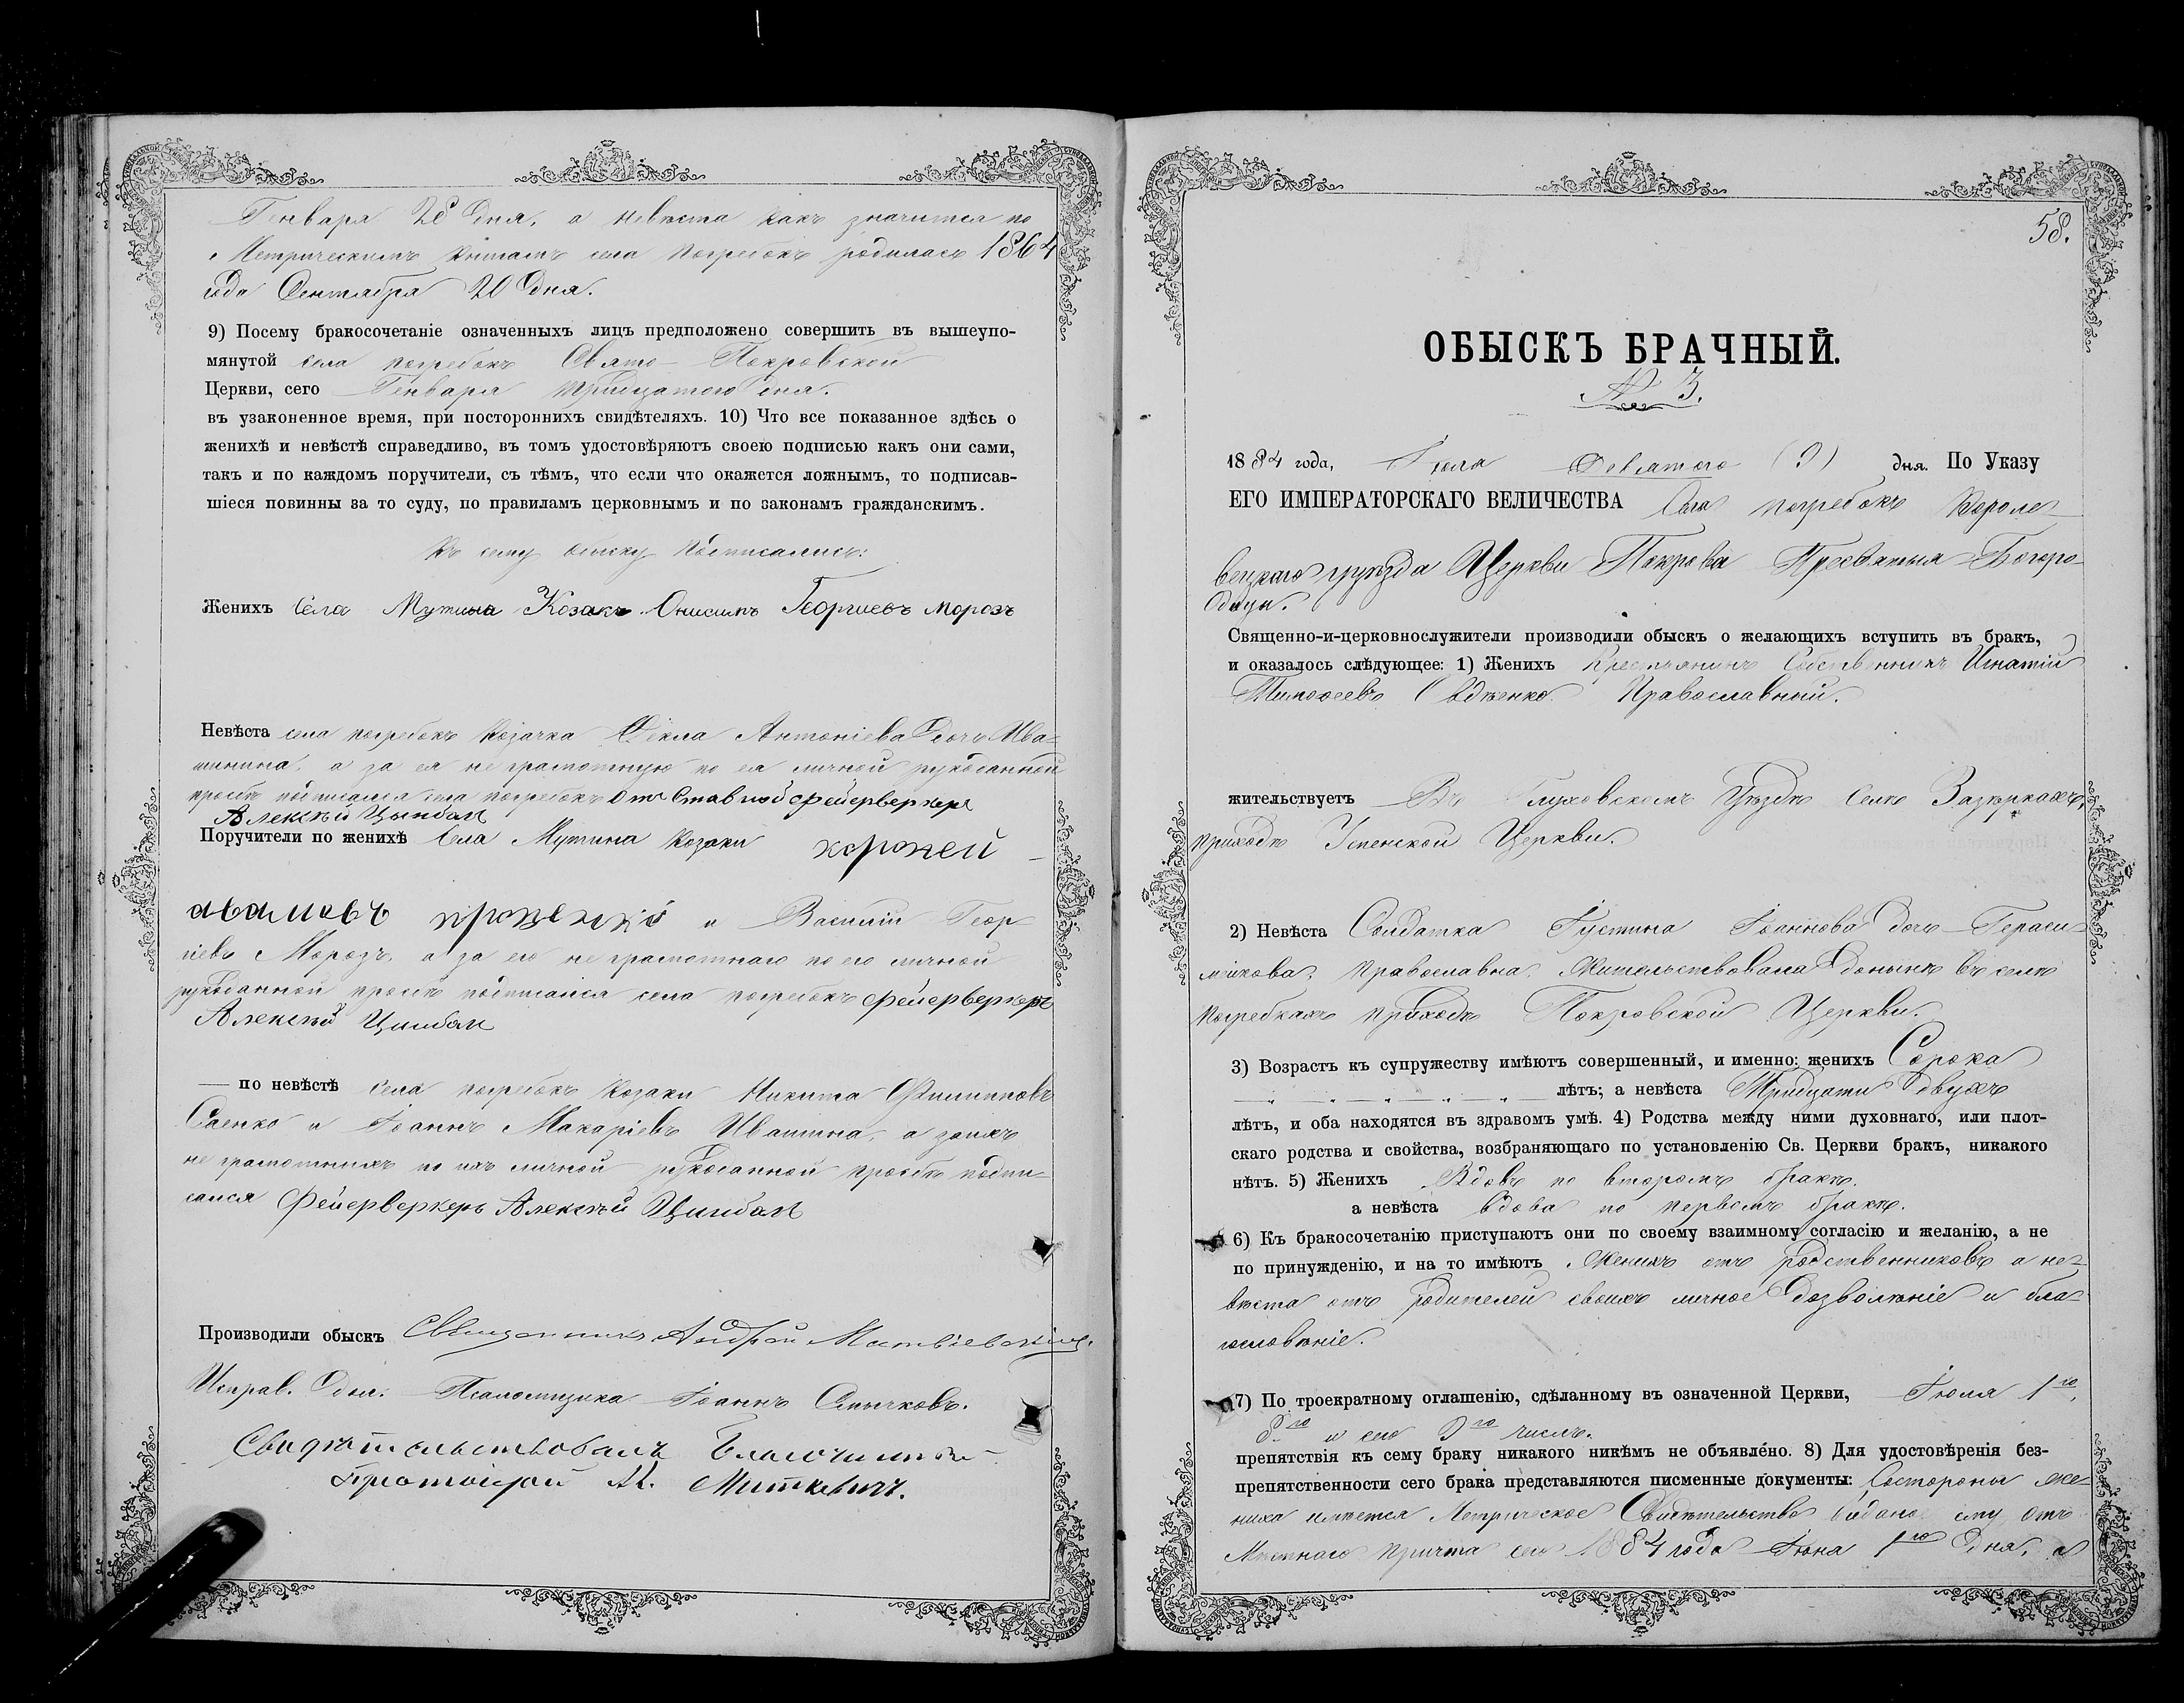 Генваря 28 дня, а невѣста какъ значится по
Метрическимъ книгамъ села Погребокъ родилась 1864
года Сентября 20 дня.
9) Посему бракосочетаніе означенныхъ лицъ предположено совершить въ вышеупо-
мянутой села Погребокъ Свято-Покровской
Церкви, сего Генваря Тридцатого дня.
въ узаконенное время, при постороннихъ свидѣтеляхъ. 10) Что все показанное здѣсь о
женихѣ и невѣстѣ справедливо, въ томъ удостовѣряютъ своею подписью какъ они сами,
такъ и по каждомъ поручители, съ тѣмъ, что если что окажется ложнымъ, то подписав-
шіеся повинны за то суду, по правиламъ церковнымъ и по законамъ гражданскимъ.
Къ сему обыску подписались:
Женихъ Села Мутина Козакъ Онисимъ Георгиевъ Морозъ
Невѣста села Погребокъ Козачка Ѳекла Антоніева дочь Ива-
шинина, а за ея не грамотную по ея личной рукоданной
просьбѣ подписался села Погребокъ Отъ Ставной фейерверкеръ
Алексѣй Цынбал
Поручители по женихѣ Села Мутина Козаки
и Василій Геор
гіевъ Морозъ, а за его не грамотнаго по его личной
рукоданной просьбѣ подписался села Погребокъ фейерверкеръ
Алексѣй Цынбал
— по невѣстѣ села Погребокъ Козаки Никита Филипповъ
Саенко и Іоаннъ Макаріевъ Ивашина, а за ихъ
не грамотныхъ по ихъ личной рукоданной просьбѣ подпи-
сался Фейерверкеръ Алексѣй Цынбал
Производили обыскъ Священникъ Андрей Матвіевскій.
Исправ. долж. Псаломщика Іоаннъ Смычковъ.
Свидѣтельствовалъ Благочинный
Протоіерей Миткевичъ.
58.
ОБЫСКЪ БРАЧНЫЙ.
№ 3.
1884 года, Іюля Девятого (9) дня. По Указу
ЕГО ИМПЕРАТОРСКАГО ВЕЛИЧЕСТВА Села Погребокъ Кроле-
вецкаго уѣзда Церкви Покрова Пресвятыя Богоро-
дицы.
Священно-и-церковнослужители производили обыскъ о желающихъ вступить въ бракъ,
и оказалось слѣдующее: 1) Женихъ Крестьянинъ Собственникъ Игнатій
Тимоѳеевъ Православный.
жительствуетъ Въ Глуховскомъ Уѣздѣ Селѣ Зазѣркахъ,
приходѣ Успенской Церкви.
2) Невѣста Солдатка Іустина Іоаннова дочь Гераси-
мікова, Православна. Жительствовала донынѣ въ селѣ
Погребкахъ приходѣ Покровской Церкви.
3) Возрастъ къ супружеству имѣютъ совершенный, и именно: женихъ Сорока
— „ — „ — „ — „ — „ лѣтъ; а невѣста Тридцати двухъ
лѣтъ, и оба находятся въ здравомъ умѣ. 4) Родства между ними духовнаго, или плот-
скаго родства и свойства, возбраняющаго по установленію Св. Церкви бракъ, никакого
нѣтъ. 5) Женихъ Вдовъ по второмъ бракѣ.
а невѣста вдова по первомъ бракѣ.
6) Къ бракосочетанію приступаютъ они по своему взаимному согласію и желанію, а не
по принужденію, и на то имѣютъ Женихъ отъ родственниковъ а не-
вѣста отъ родителей своихъ личное дозволѣніе и бла-
гословѣніе.
7) По троекратному оглашенію, сдѣланному въ означенной Церкви, Іюля 1го,
8го и сего 9го числъ.
препятствія къ сему браку никакого никѣмъ не объявлено. 8) Для удостовѣренія без-
препятственности сего брака представляются писменные документы: Состороны же-
ниха имѣется Метрическое Свидѣтельство видано ему отъ
Мѣстнаго причта сего 1884 года Іюна 1го дня, а